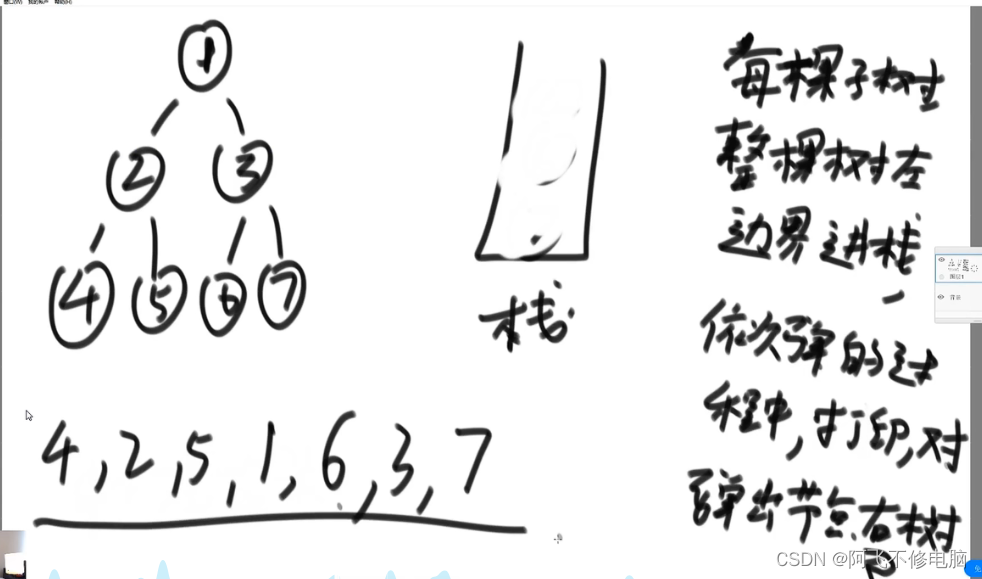 窗口(W) 我的帐户 帮助(H)
1
2 3
4 5 6 7
栈
每棵子树
整棵树左
边界进栈,
依次弹的过
程中,打印,对
弹出节点右树
4,2,5,1,6,3,7
背景
CSDN @阿飞不修电脑